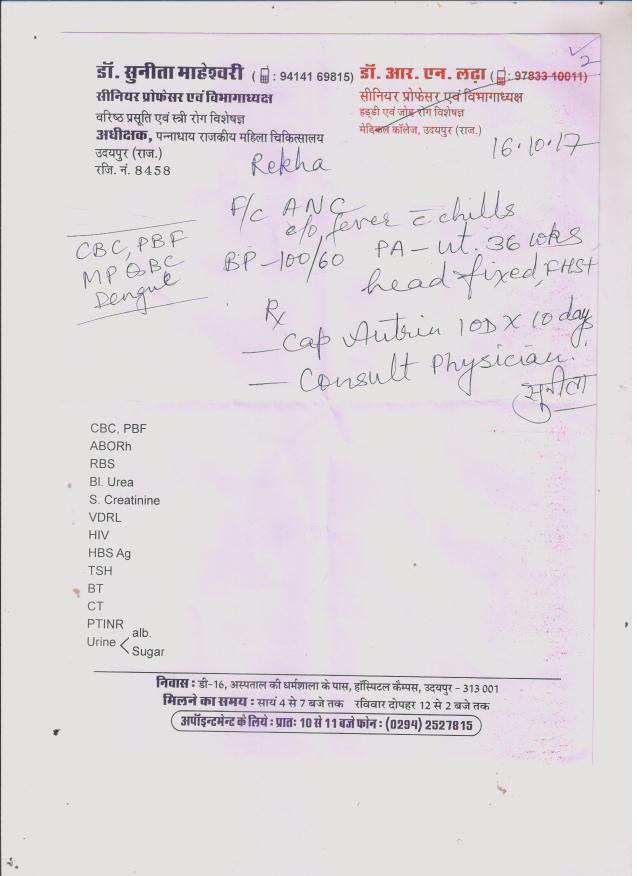 2
डॉ. सुनीता माहेश्वरी ( : 94141 69815) डॉ. आर. एन. लढ़ा ( : 97833 10011)
सीनियर प्रोफेसर एवं विभागाध्यक्ष सीनियर प्रोफेसर एवं विभागाध्यक्ष
वरिष्ठ प्रसूति एवं स्त्री रोग विशेषज्ञ हड्डी एवं जोड़ रोग विशेषज्ञ
अधीक्षक, पन्नाधाय राजकीय महिला चिकित्सालय मेडिकल कॉलेज, उदयपुर (राज.)
उदयपुर (राज.)
रजि. नं. 8458
16.10.17
Rekha
F/c ANC
c/o fever c̄ chills
CBC, PBF
MP QBC
Dengue
BP - 100/60 PA - ut. 36 wks
head fixed, FHS+
Rx
— Cap Autrin 1OD X 10 days
— Consult Physician.
सुनीता
CBC, PBF
ABORh
RBS
Bl. Urea
S. Creatinine
VDRL
HIV
HBS Ag
TSH
BT
CT
PTINR
Urine < alb.
Sugar
निवास : डी-16, अस्पताल की धर्मशाला के पास, हॉस्पिटल कैम्पस, उदयपुर - 313 001
मिलने का समय : सायं 4 से 7 बजे तक रविवार दोपहर 12 से 2 बजे तक
अपॉइन्टमेन्ट के लिये : प्रातः 10 से 11 बजे फोन : (0294) 2527815